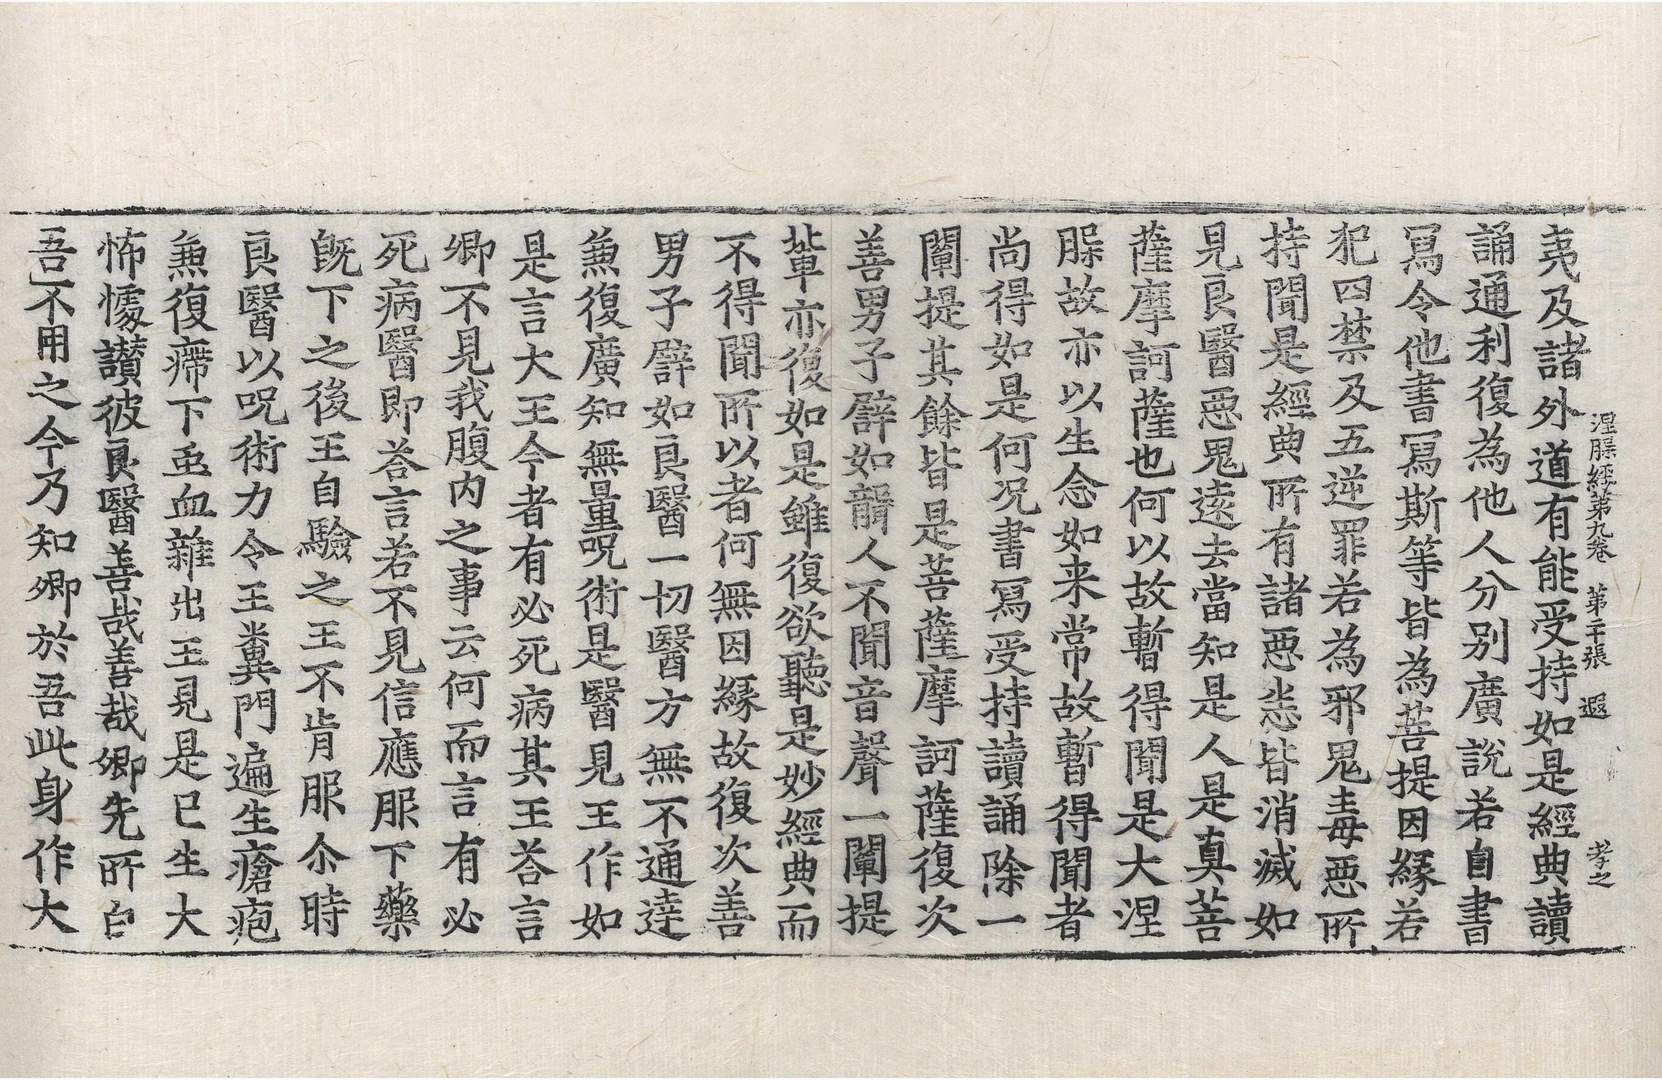 涅脲經第九卷 第二十張 遐 孝之
夷及諸外道有能受持如是經典讀
誦通利復為他人分别廣說若自書
冩令他書冩斯等皆為菩提因縁若
犯四禁及五逆罪若為邪鬼毒惡所
持聞是經典所有諸惡悉皆消滅如
見良醫惡鬼遠去當知是人是真菩
薩摩訶薩也何以故暫得聞是大涅
脲故亦以生念如来常故暫得聞者
尚得如是何况書冩受持讀誦除一
闡提其餘皆是菩薩摩訶薩復次
善男子譬如聾人不聞音聲一闡提
輩亦復如是雖復欲聽是妙經典而
不得聞所以者何無因縁故復次善
男子譬如良醫一切醫方無不通達
兼復廣知無量呪術是醫見王作如
是言大王今者有必死病其王荅言
卿不見我腹内之事云何而言有必
死病醫即荅言若不見信應服下藥
既下之後王自驗之王不肯服尒時
良醫以呪術力令王糞門遍生瘡疱
兼復㿃下䖝血雜出王見是已生大
怖懅讃彼良醫善哉善哉卿先所白
吾不用之今乃知卿於吾此身作大